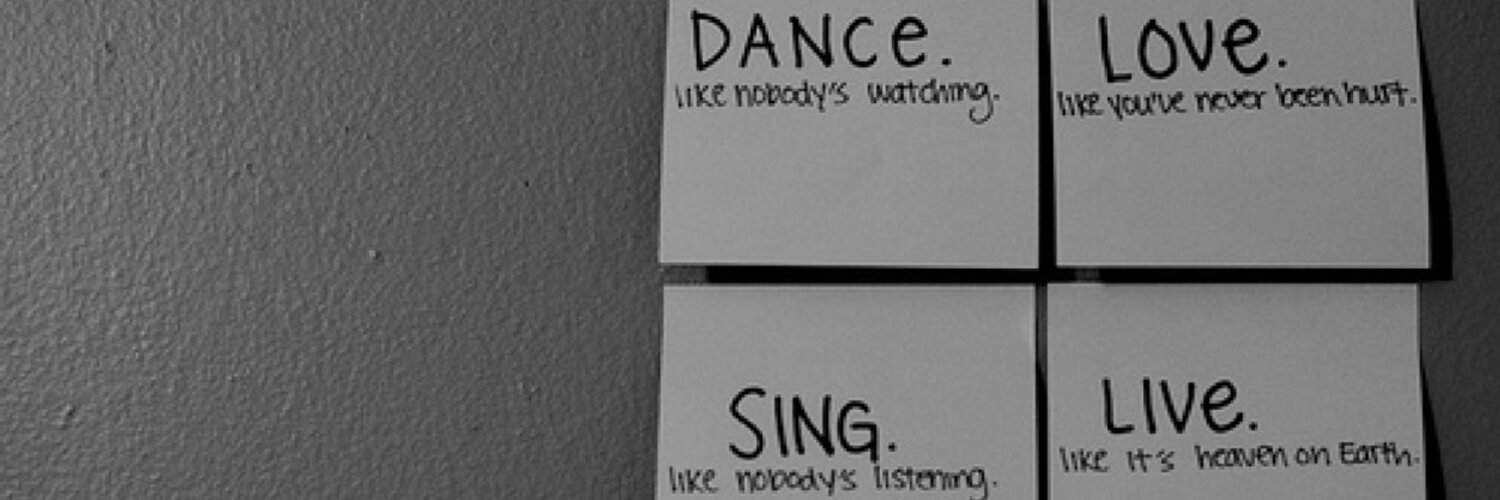 DANCe.
like nobody's watching.
LOVe.
like you've never been hurt.
SING.
like nobody's listening.
LIVe.
like it's heaven on Earth.